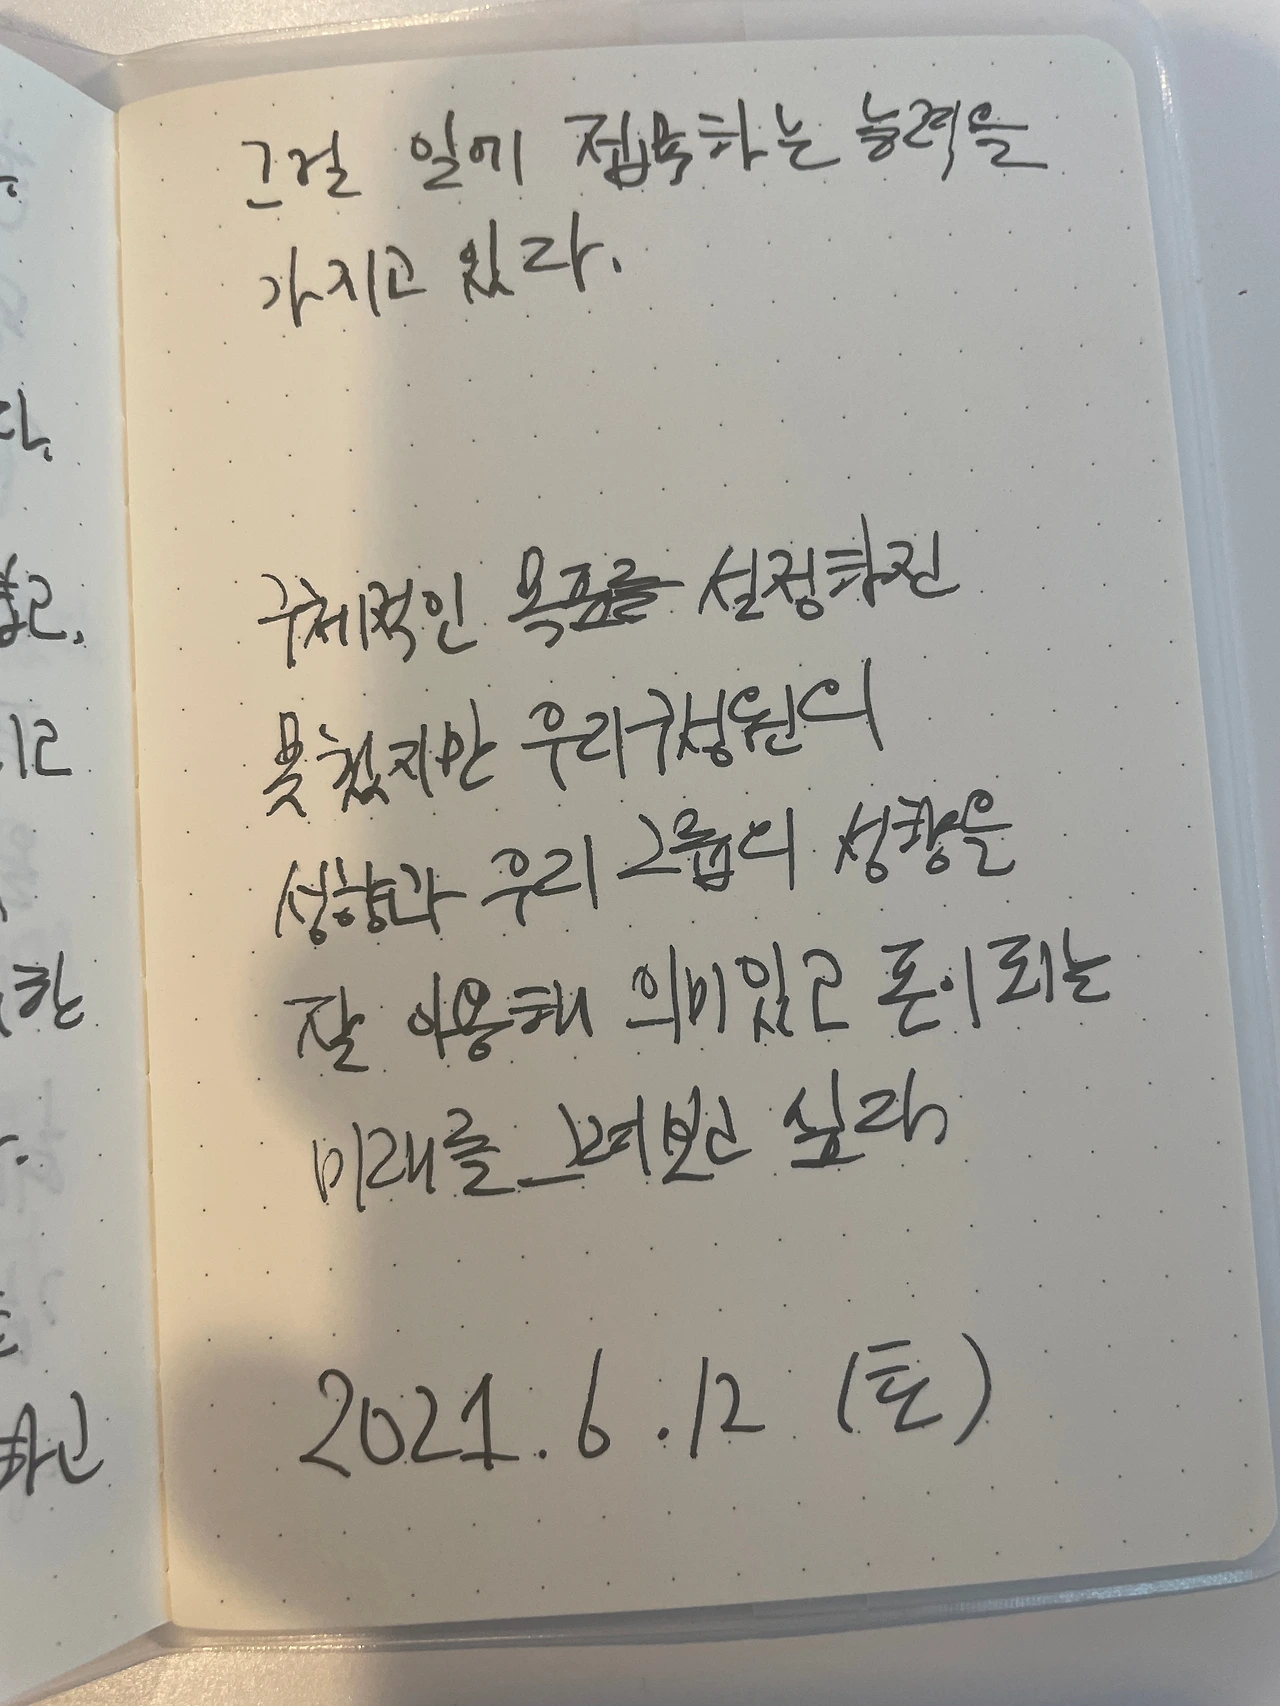 그걸 일에 접목하는 능력을
가지고 있다.
구체적인 목표를 설정하진
못했지만 우리구성원의
성향과 우리 그룹의 성향을
잘 이용해 의미있고 돈이 되는
미래를 그려보고 싶다.
2021. 6. 12 (토)
다.
고.
고
한
하고